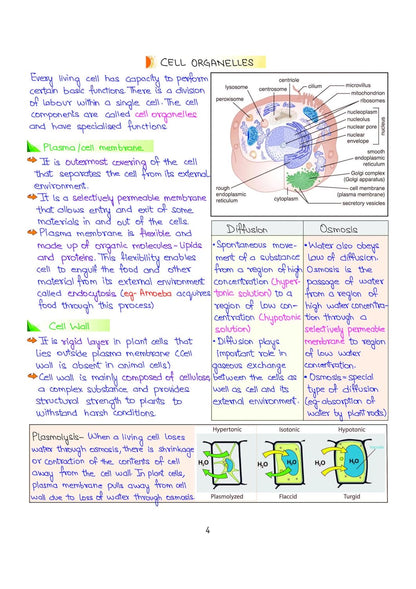 CELL ORGANELLES
Every living cell has capacity to perform
certain basic functions. There is a division
of labour within a single cell. The cell
components are called cell organelles
and have specialised functions
Plasma/cell membrane.
It is outermost covering of the cell
that separates the cell from its external
environment.
It is a selectively permeable membrane
that allows entry and exit of some
materials in and out of the cells.
Plasma membrane is flexible and
made up of organic molecules- Lipids
and proteins. This flexibility enables
cell to engulf the food and other
material from its external environment
called endocytosis (eg-Amoeba acquires
food through this process)
Cell Wall
It is rigid layer in plant cells that
lies outside plasma membrane (Cell
wall is absent in animal cells)
Cell wall is mainly composed of cellulose,
a complex substance and provides
structural strength to plants to
withstand harsh conditions.
centriole
lysosome
centrosome
cilium
microvilli
peroxisome
mitochondrion
ribosomes
nucleoplasm
nucleolus
nuclear pore
nuclear
envelope
smooth
endoplasmic
reticulum
rough
endoplasmic
reticulum
cytoplasm
Golgi complex
(Golgi apparatus)
cell membrane
(plasma membrane)
secretory vesicles
Diffusion
• Spontaneous move-
ment of a substance
from a region of high
concentration (hyper-
tonic solution) to a
region of low con-
centration (Hypotonic
solution)
• Diffusion plays
important role in
gaseous exchange
between the cells as
well as cell and its
external environment.
Osmosis
• Water also obeys
law of diffusion.
Osmosis is the
passage of water
from a region of
high water concentra-
tion through a
selectively permeable
membrane to region
of low water
concentration.
• Osmosis = special
type of diffusion
(eg-absorption of
water by plant rods)
Plasmolysis- When a living cell loses
water through osmosis, there is shrinkage
or contraction of the contents of cell
away from the cell wall. In plant cells,
plasma membrane pulls away from cell
wall due to loss of water through osmosis.
Hypertonic
Isotonic
Hypotonic
H₂O
H₂O
H₂O
H₂O
H₂O
Plasmolyzed
Flaccid
Turgid
4